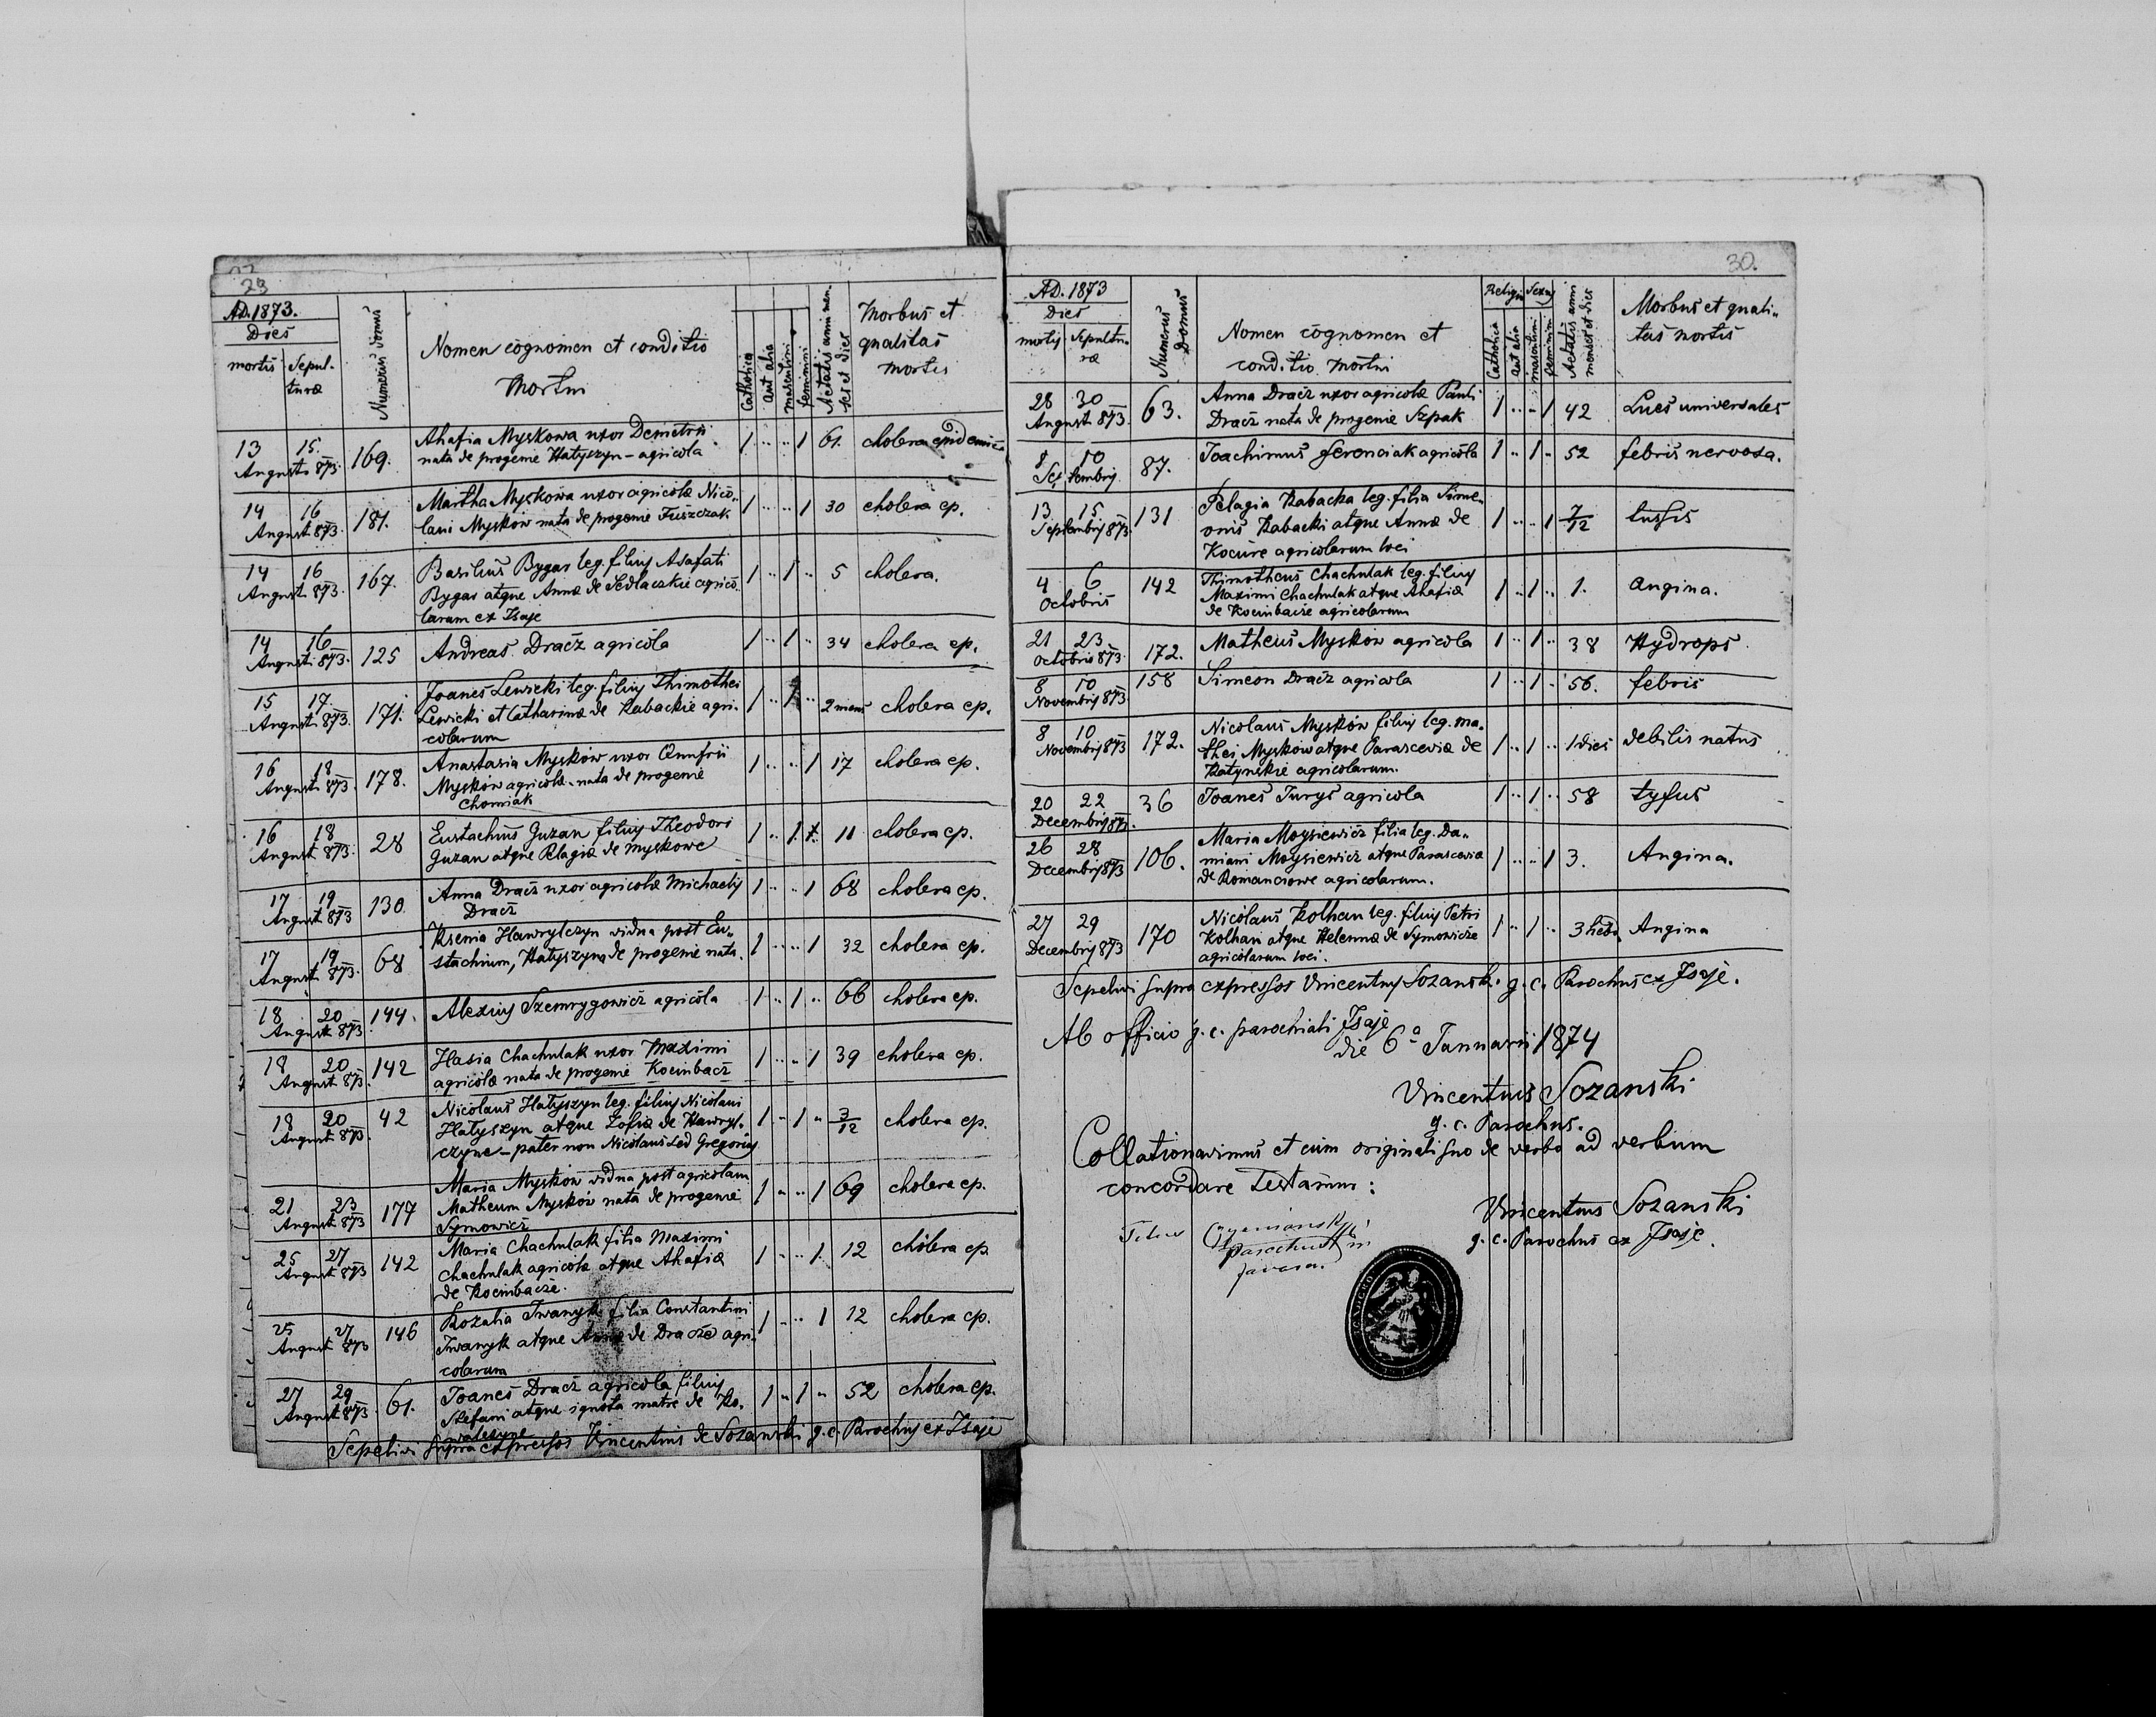 29
AD. 1873.
Dies
mortis Sepul-
turæ
Numerus domus
Nomen cognomen et conditio
Mortui
Catholica
aut alia
masculini
feminini
Aetatis anni men-
ses et dies
Morbus et
qualitas
mortis
13 15. 169. Ahafia Myskowa uxor Demetrii 1 .. .. 1 61. cholera epidemic
Augusti 873. nata de progenie Hatyszyn - agricola
14 16 181. Martha Myskowa uxor agricolæ Nico„ 1 .. .. 1 30 cholera ep.
August 873. lani Myskow nata de progenie Fuszczak
14 16 167. Basilius Bygar leg. filius Asafati 1 .. 1 .. 5 cholera.
August 873. Bygar atque Annæ de Sedlaczkie agrico
larum ex Isaje
14 16 125 Andreas Dracz agricola 1 .. 1 .. 34 cholera ep.
August 873.
15 17. 171. Joanes Lewicki leg. filius Thimothei 1 .. 1 .. 2 mens cholera ep.
August 873. Lewicki et Catharinæ de Rabackie agri-
colarum
16 18 178. Anastasia Myskow uxor Onufrii 1 .. .. 1 17 cholera ep.
August 873. Myskow agricolæ nata de progenie
Chomiak
16 18 28 Eustachius Guzan filius Theodori 1 .. 1 11 cholera ep.
August 873. Guzan atque Pelagiæ de Myskowe
17 19 130 Anna Dracz uxor agricolæ Michaelis 1 .. .. 1 68 cholera ep.
August 873 Dracz
17 19 68 Ksenia Hawrylczyn vidua post Eu„ 1 .. .. 1 32 cholera ep.
August 873. stachium, Hatyszyn de progenie nata.
18 20 144. Alexius Szemrygowicz agricola 1 .. 1 .. 66 cholera ep.
August 873.
18 20 142 Hasia Chachulak uxor Maximi 1 .. .. 1 39 cholera ep.
August 873. agricolæ nata de progenie Kocinbacz
18 20 42 Nicolaus Hatyszyn leg. filius Nicolani 1 .. 1 .. 3/12 cholera ep.
August 873. Hatyszyn atque Zofiæ de Hawryl-
czyne - pater non Nicolaus sed Gregorius
21 23 177 Maria Myskow vidua post agricolam 1 .. .. 1 69 cholera ep.
August 873 Matheum Myskow nata de progenie
Symowicz
25 27 142 Maria Chachulak filia Maximi 1 .. .. 1. 12 cholera ep
August 873 Chachulak agricolæ atque Ahafiæ
de Kocinbacze.
25 27 146 Rozalia Iwanyk filia Constantini 1 .. .. 1 12 cholera ep.
August 873 Iwanyk atque Annæ de Dracze agri-
colarum
27 29 61. Joanes Dracz agricola filius 1 .. 1 .. 52 cholera ep.
August 873. Stefani atque ignota matre de Ko.
walczyne
Sepelivi supra expressos Vincentius de Sozanski g. c. Parochus ex Isaje
30.
AD. 1873
Dies
mortis Sepultu-
ræ
Numerus
Domus
Nomen cognomen et
conditio mortui
Religio Sexus
Catholica
aut alia
masculini
feminini
Aetatis anni
menses et dies
Morbus et quali„
tas mortis
28 30 63. Anna Dracz uxor agricolæ Pauli 1 .. .. 1 42 Lues universales
August 873. Dracz nata de progenie Szpak
8 10 87. Joachimus Ferenciak agricola 1 .. 1 .. 52 febris nervosa.
Septembris
13 15 131 Pelagia Rabacka leg. filia Sime„ 1 .. .. 1 7/12 tussis
Septembris 873. onis Rabacki atque Annæ de
Kocure agricolarum loci
4 6 142 Thimotheus Chachulak leg. filius 1 .. 1 .. 1. angina.
Octobris Maximi Chachulak atque Ahafiæ
de Kocinbacze agricolarum
21 23 172. Matheus Myskow agricola 1 .. 1 .. 38 Hydrops
Octobris 873.
8 10 158 Simeon Dracz agricola 1 .. 1 .. 56. febris
Novembris 873
8 10 172. Nicolaus Myskow filius leg. Ma- 1 .. 1 .. 1 dies debilis natus
Novembris 873 thei Myskow atque Parasceviæ de
Ratynskie agricolarum.
20 22 36 Joanes Jurys agricola 1 .. 1 .. 58 tyfus
Decembris 873.
26 28 106. Maria Moysiewicz filia leg. Da„ 1 .. .. 1 3. Angina.
Decembris 873 miani Moysiewicz atque Parasceviæ
de Romanciowe agricolarum.
27 29 170 Nicolaus Kolhan leg. filius Petri 1 .. 1 .. 3 hebd. Angina
Decembris 873 Kolhan atque Helennæ de Symowicze
agricolarum loci.
Sepelivi supra expressos Vincentius Sozanski g. c. Parochus ex Isaje.
Ab officio g. c. parochiali Isaje
die 6a Januarii 1874
Vincentius Sozanski
g. c. Parochus.
Collationavimus et cum originali suo de verbo ad verbum
concordare testamur:
Vincentius Sozanski
g. c. Parochus ex Isaje.
Titus
Parochus in
Javora.